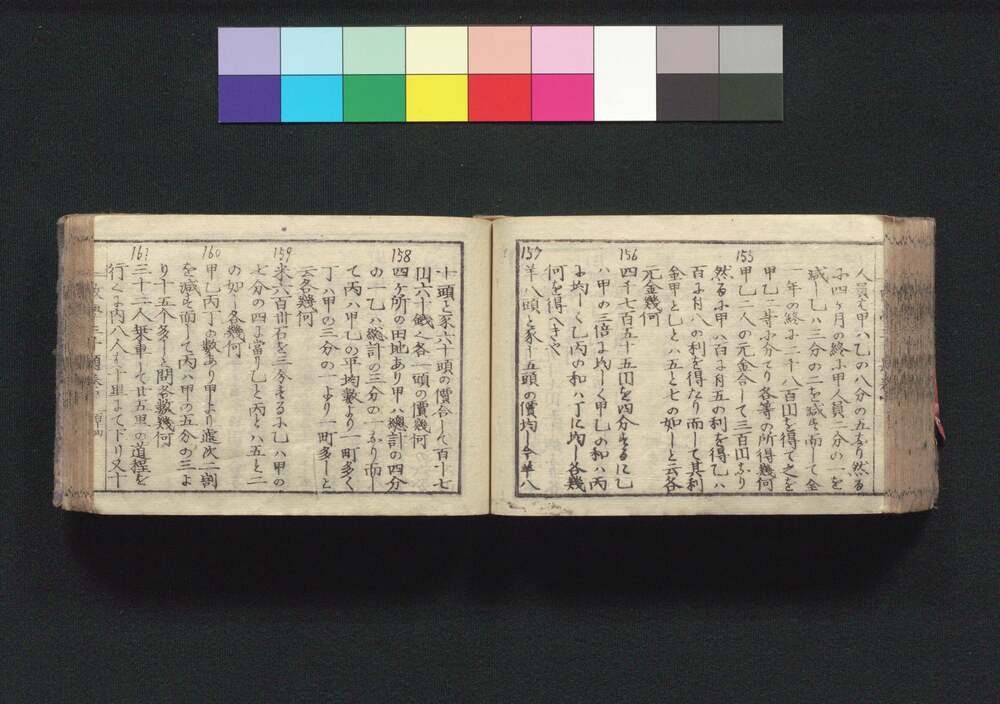 人員ハ甲ハ乙の八分の五なり然るに
四ヶ月の終に甲人員二分の一を
減し乙ハ三分の二を減せり而して金
一年の終に二千八百円を得て之を
甲乙二等に分てり各等の所得幾何
155
甲乙二人の元金合して三百円なり
然るに甲ハ百に付五の利を得乙ハ
百に付八の利を得たり而して其利
金甲と乙とハ五と七の如しと云各
元金幾何
156
四千七百五十五円を四分するに乙
ハ甲の三倍に均しく甲乙の和ハ丙
に均しく乙丙の和ハ丁に均し各幾
何を得べきや
157
羊八頭と豕十五頭の價均し今羊八
十頭と豕六十頭の價合して百十七
円六十銭と各一頭の價幾何
158
四ヶ所の田地あり甲ハ總計の四分
の一乙ハ總計の三分の一なり而し
て丙ハ甲乙の平均數より一町多く
丁ハ甲の三分の一より一町多しと
云各幾何
159
米六百丗石を三分するに乙ハ甲の
七分の四に當り乙と丙とハ五と二
の如し各幾何
160
甲乙丙丁の數あり甲より遞次二割
を減す而して丙ハ甲の五分の三よ
り十五个多しと問各數幾何
161
三十二人乗車して廿五里の道程を
行くに内八人も十里にて下り又十